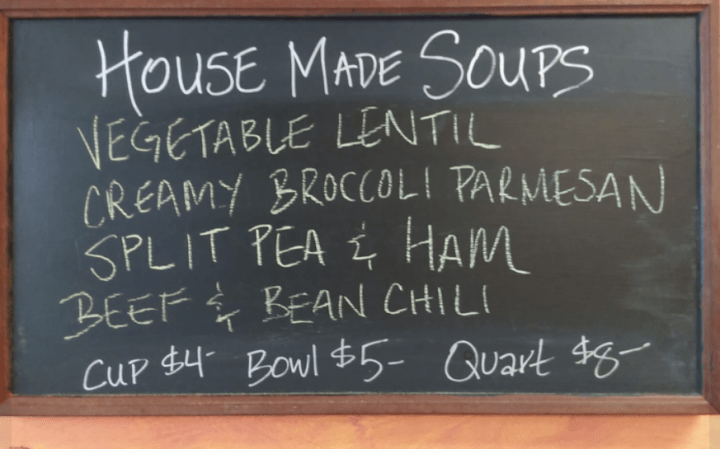 HOUSE MADE SOUPS
VEGETABLE LENTIL
CREAMY BROCCOLI PARMESAN
SPLIT PEA & HAM
BEEF & BEAN CHILI
CUP $4- BOWl $5- Quart $8-